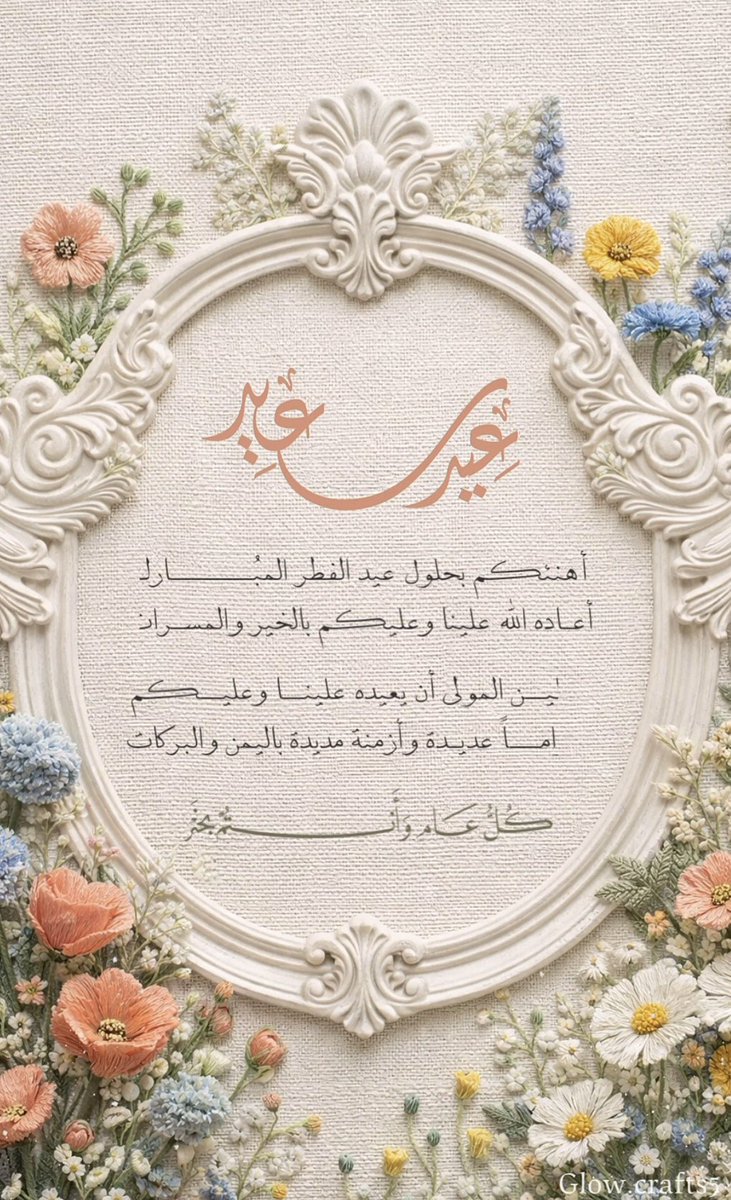 عيد سعيد
أهنئكم بحلول عيد الفطر المُبارك
أعاده الله علينا وعليكم بالخير والمسرات
المولى أن يعيده علينا وعليكم
اماً عديدة وأزمنة مديدة باليمن والبركات
كُلُّ عَام وَأَنتُمْ بخَير
Glow.crafts5